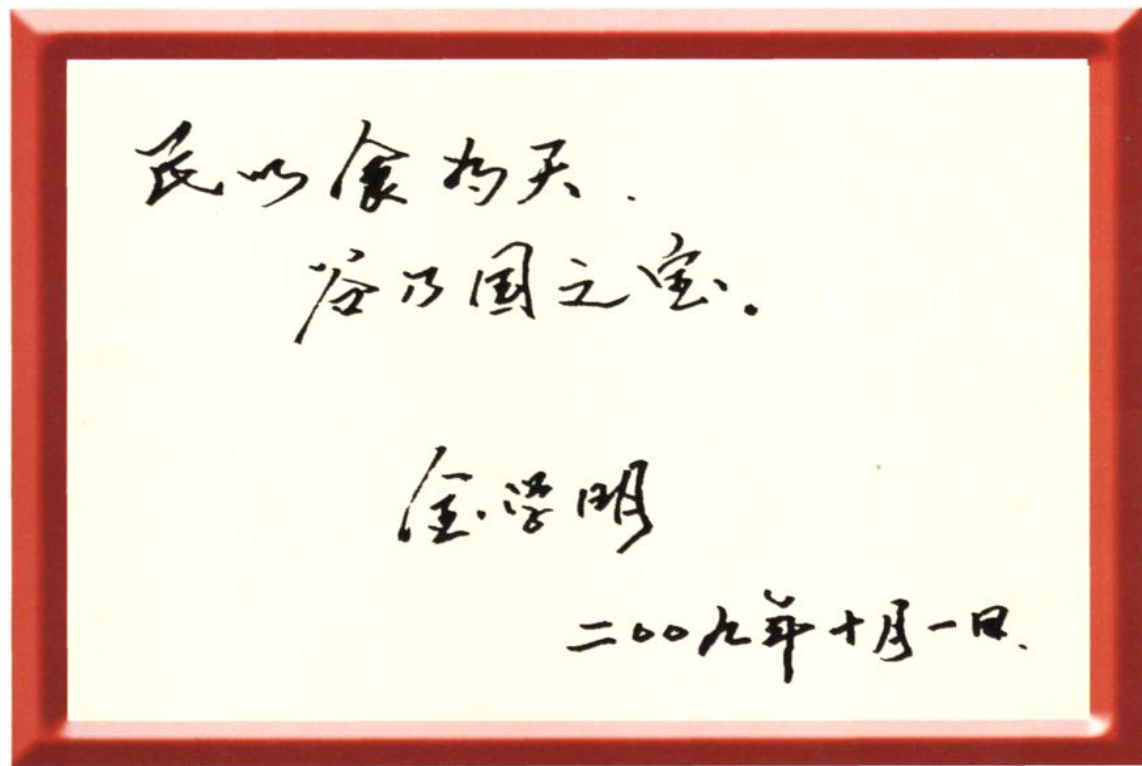 民以食为天.
谷乃国之宝.
金学明
二〇〇九年十月一日.